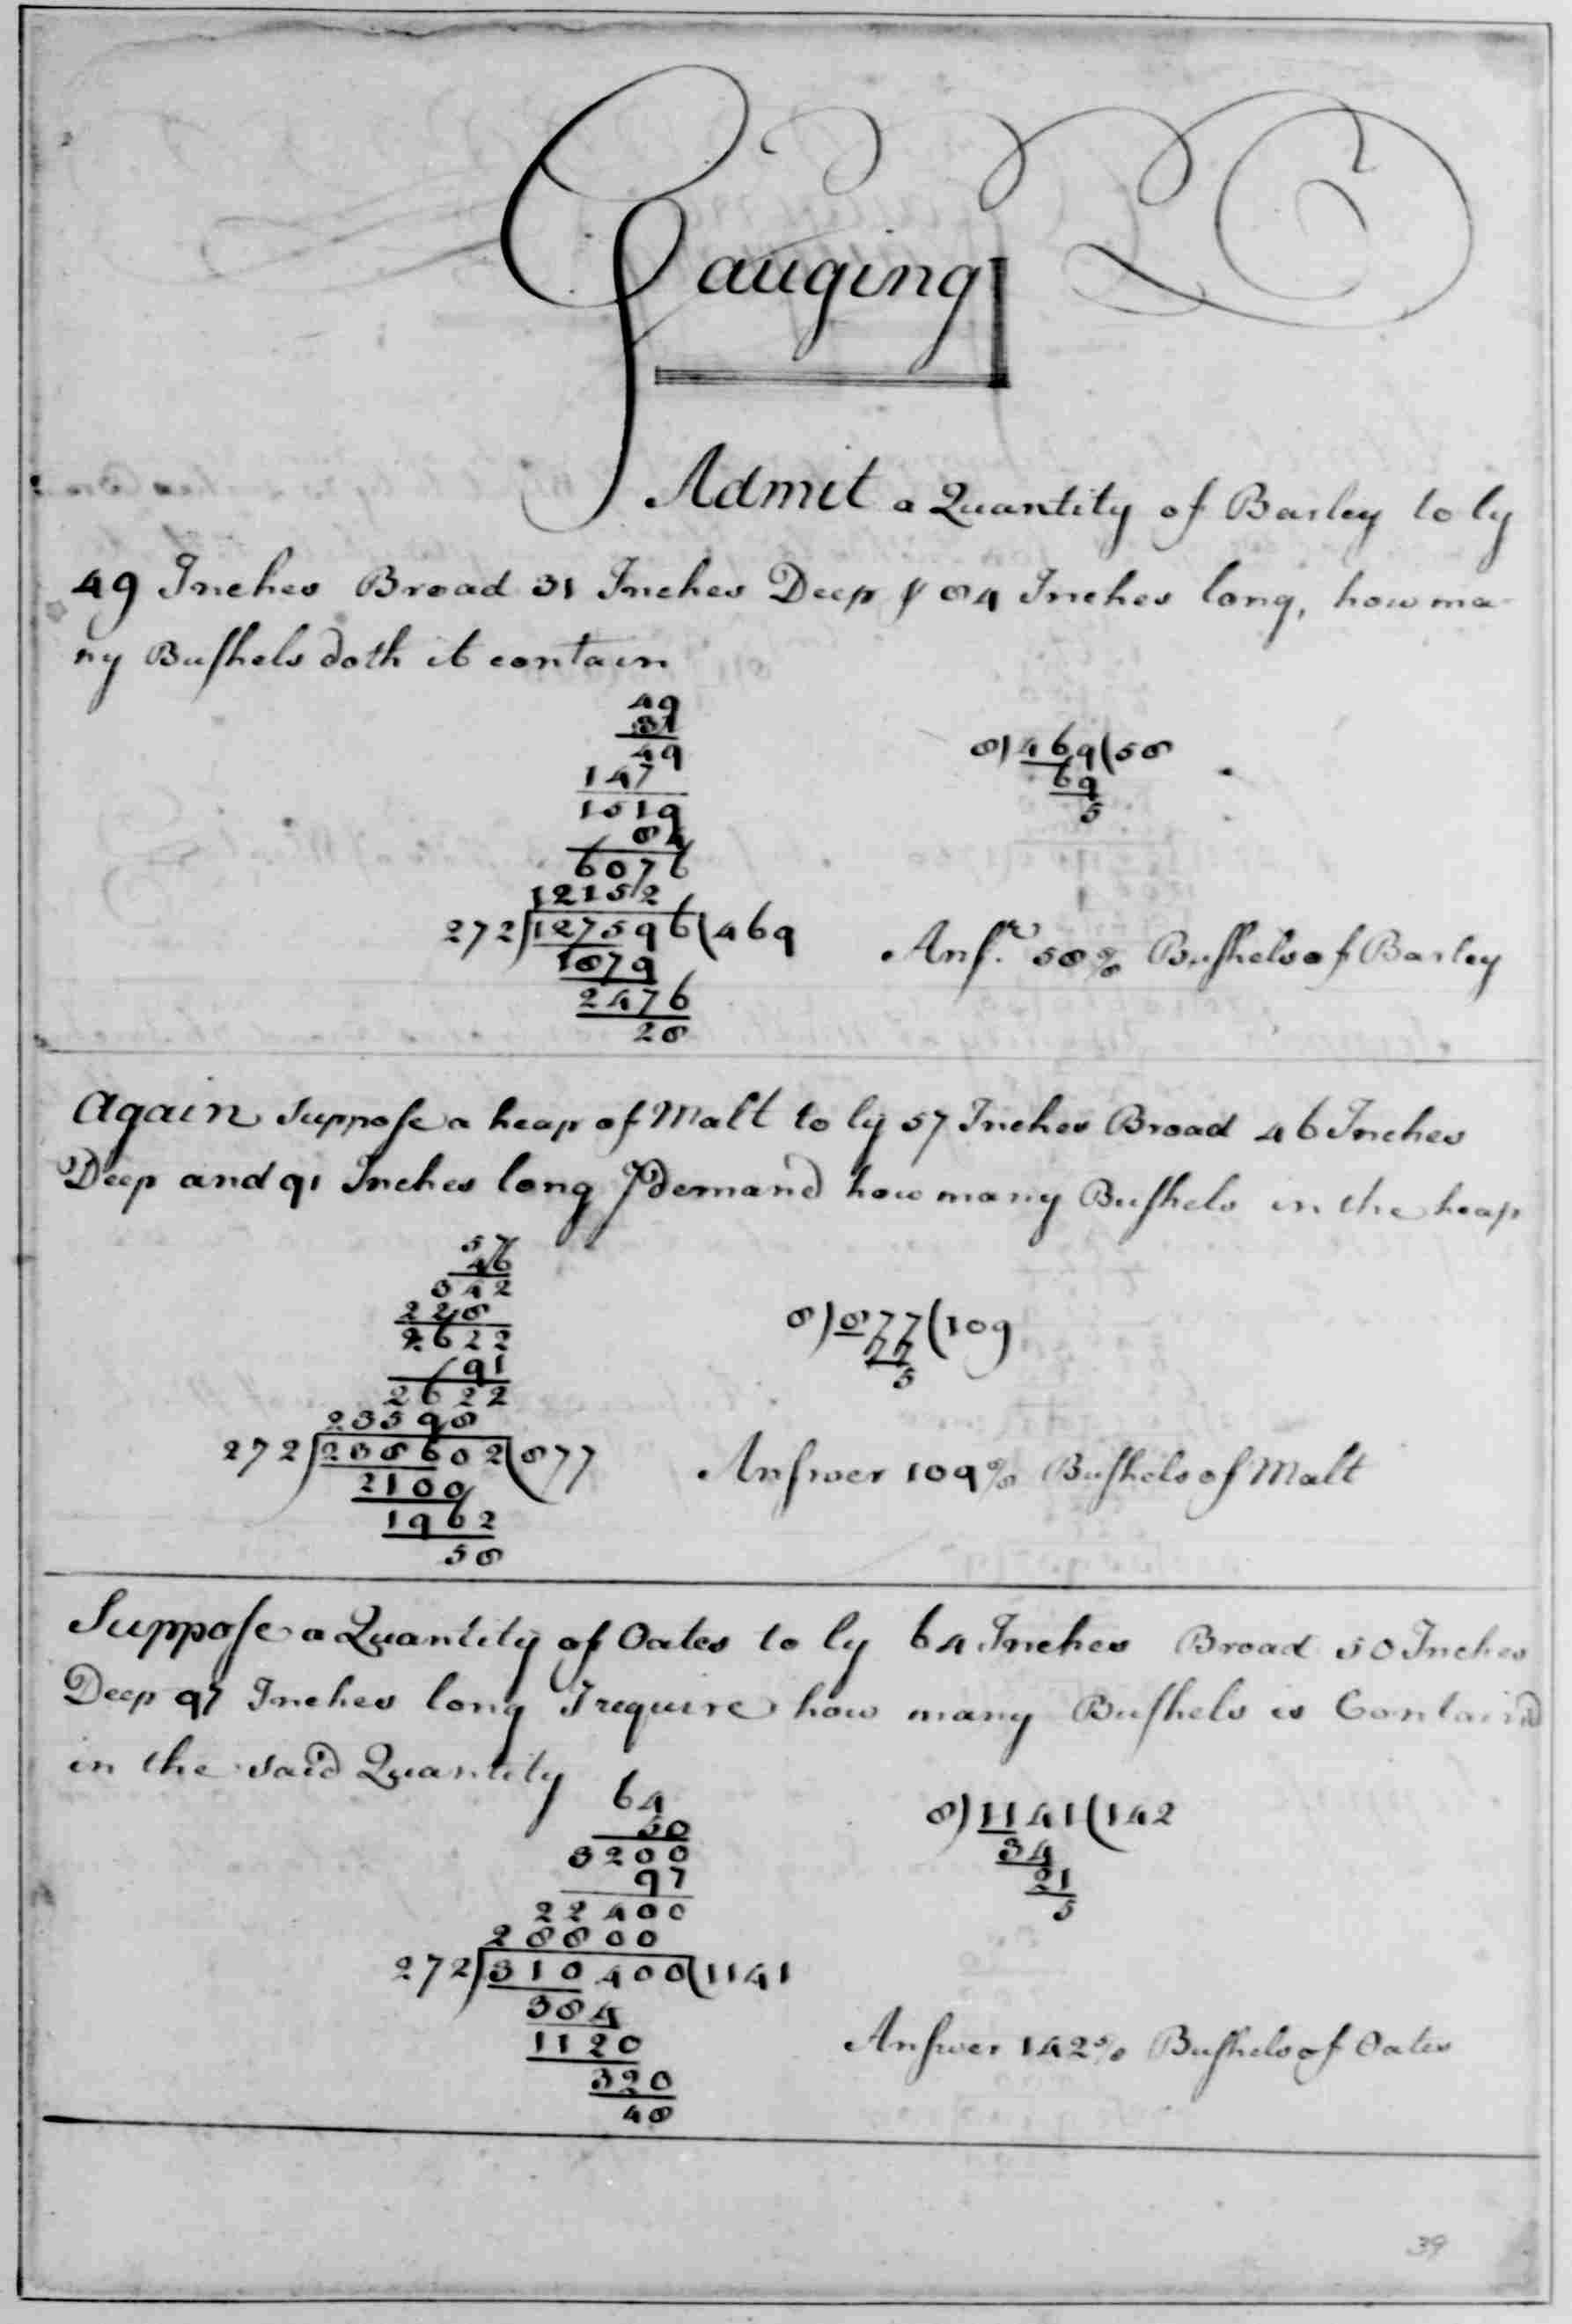 Gauging
Admit a Quantity of Barley to ly
49 Inches Broad 31 Inches Deep & 84 Inches long, how ma-
ny Buſhels doth it contain
49
31
49
147
1519
84
6076
12152
272)127596(469
1879
2476
28
8)469(58
69
5
Anſ.r 58 5/8 Buſhels of Barley
Again Suppoſe a heap of Malt to ly 57 Inches Broad 46 Inches
Deep and 91 Inches long I demand how many Buſhels in the heap
57
46
342
228
2622
91
2622
23598
272)238602(877
2100
1962
58
8)877(109
77
5
Anſwer 109 5/8 Buſhels of Malt
Suppoſe a Quantity of Oates to ly 64 Inches Broad 50 Inches
Deep 97 Inches long I require how many Buſhels is Containd
in the said Quantity
64
50
3200
97
22400
28800
272)310400(1141
384
1120
320
48
8)1141(142
34
21
5
Anſwer 142 5/8 Buſhels of Oates
39